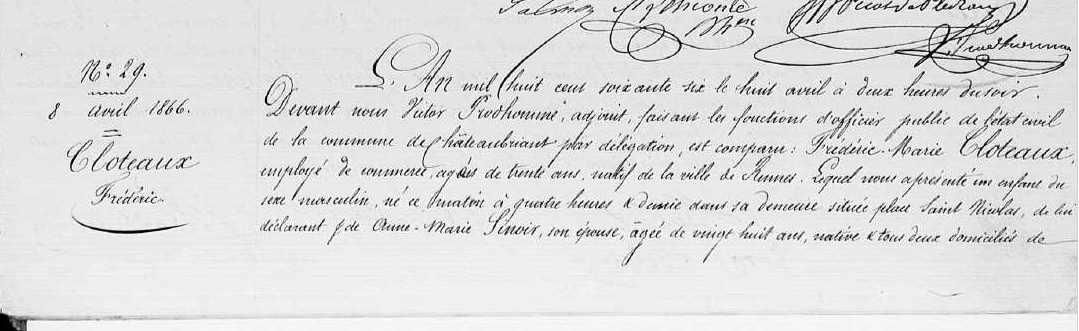 Nº 29.
8 avril 1866.
Cloteaux
Frédéric.
L'An mil huit cent soixante six le huit avril à deux heures du soir.
Devant nous Victor Prodhomme, adjoint, faisant les fonctions d'officier public de l'état civil
de la commune de Châteaubriant par délégation, est comparu : Frédéric-Marie Cloteaux,
employé de commerce, agées de trente ans, natif de la ville de Rennes. Lequel nous a présenté un enfant du
sexe masculin, né ce matin à quatre heures & demie dans sa demeure située place Saint Nicolas, de lui
déclarant & de Anne-Marie Sinoir, son épouse, âgée de vingt huit ans, native & tous deux domiciliés de